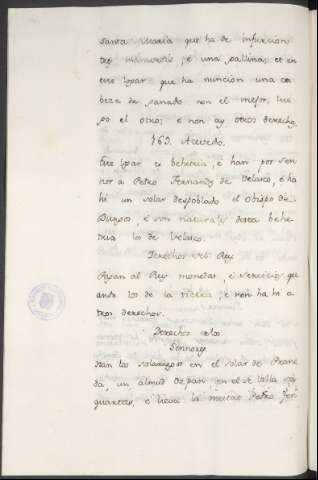 Santa Maria que ha de infurcion
tres maravedis, é una gallina; et en
este logar que ha nuncion una ca
beza de ganado non el mejor, lue
go el otro; e non ay otros derechos.
163. Acevedo.
Este logar es behetria, é han por sen
nor a Petro Fernandez de Velasco, é ha
hi un solar despoblado el Obispo de
Burgos, é son naturales desta behe
tria los de Velasco.
Derechos del Rey
Pagan al Rey monedas, é servicios que
ando los de la tierra; é non ha hi o
tros derechos.
Derechos de los
Sennores
Dan los solariegos en el solar de
da, un almud de pan en el
quartas, é lieva la meitat Petro Fer